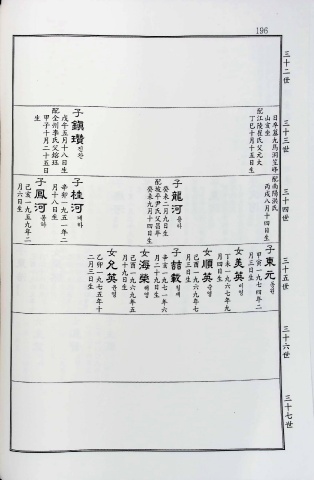 196
三十二世
三十三世
日卒墓九馬洞笠峰
山亥坐
配江陵崔氏父元大
丁巳十月十五日生
子鎭瓚 진찬
戊午五月十八日生
配全州李氏父
甲子十月二十五日
生
三十四世
配南陽洪氏
丙戌八月十四日生
子龍河 용하
癸未二月九日生
配坡平尹氏父昌年
癸未九月十四日生
子桂河 계하
辛卯一九五一年二
月十八日生
子鳳河 봉하
己亥一九五九年二
月六日生
三十五世
子東元 동원
甲寅一九七四年二
月三日生
女美英 미영
丁未一九六七年九
月四日生
女順英 순영
己酉一九六九年七
月三日生
子喆載 철재
辛亥一九七一年六
月二十九日生
女海榮 해영
己酉一九六九年五
月十九日生
女允英 윤영
乙卯一九七五年十
二月三日生
三十六世
三十七世